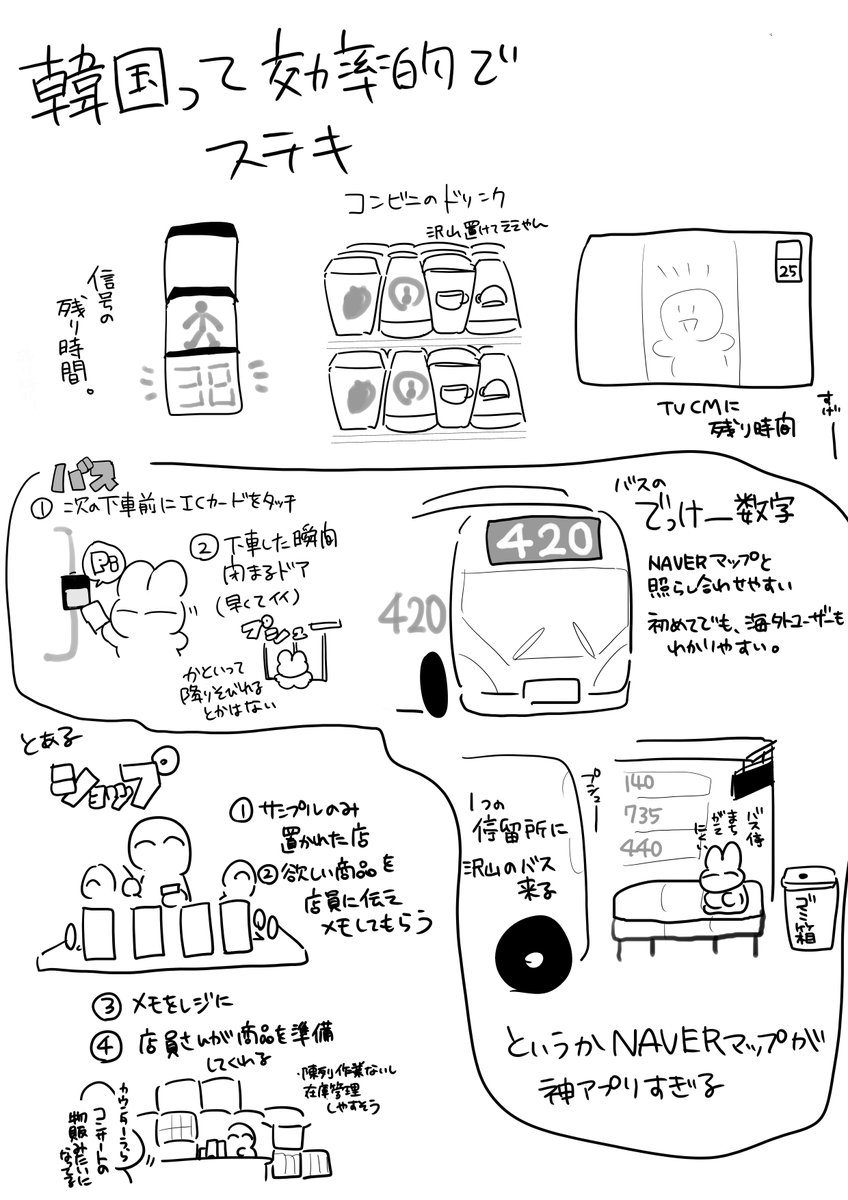 韓国って効率的で
ステキ
信号の
残り時間。
38
コンビニのドリンク
沢山置けてええやん
25
TV CMに
残り時間
すげー
バス
① 次の下車前にICカードをタッチ
Pi
② 下車した瞬間
閉まるドア
(早くてイイ)
プシュー
かといって
降りそびれる
とかはない
420
420
バスの
でっけー数字
NAVERマップと
照らし合わせやすい
初めてでも、海外ユーザーも
わかりやすい。
とある
ショップ
① サンプルのみ
置かれた店
② 欲しい商品を
店員に伝え
メモしてもらう
③ メモをレジに
④ 店員さんが商品を準備
してくれる
・陳列作業ないし
在庫管理
しやすそう
カウンターうら
コンサートの
物販みたいに
なってる
1つの
停留所に
沢山のバス
来る
プシュー
140
735
440
バス待
まち
がえ
にくい
ゴミ箱
というかNAVERマップが
神アプリすぎる